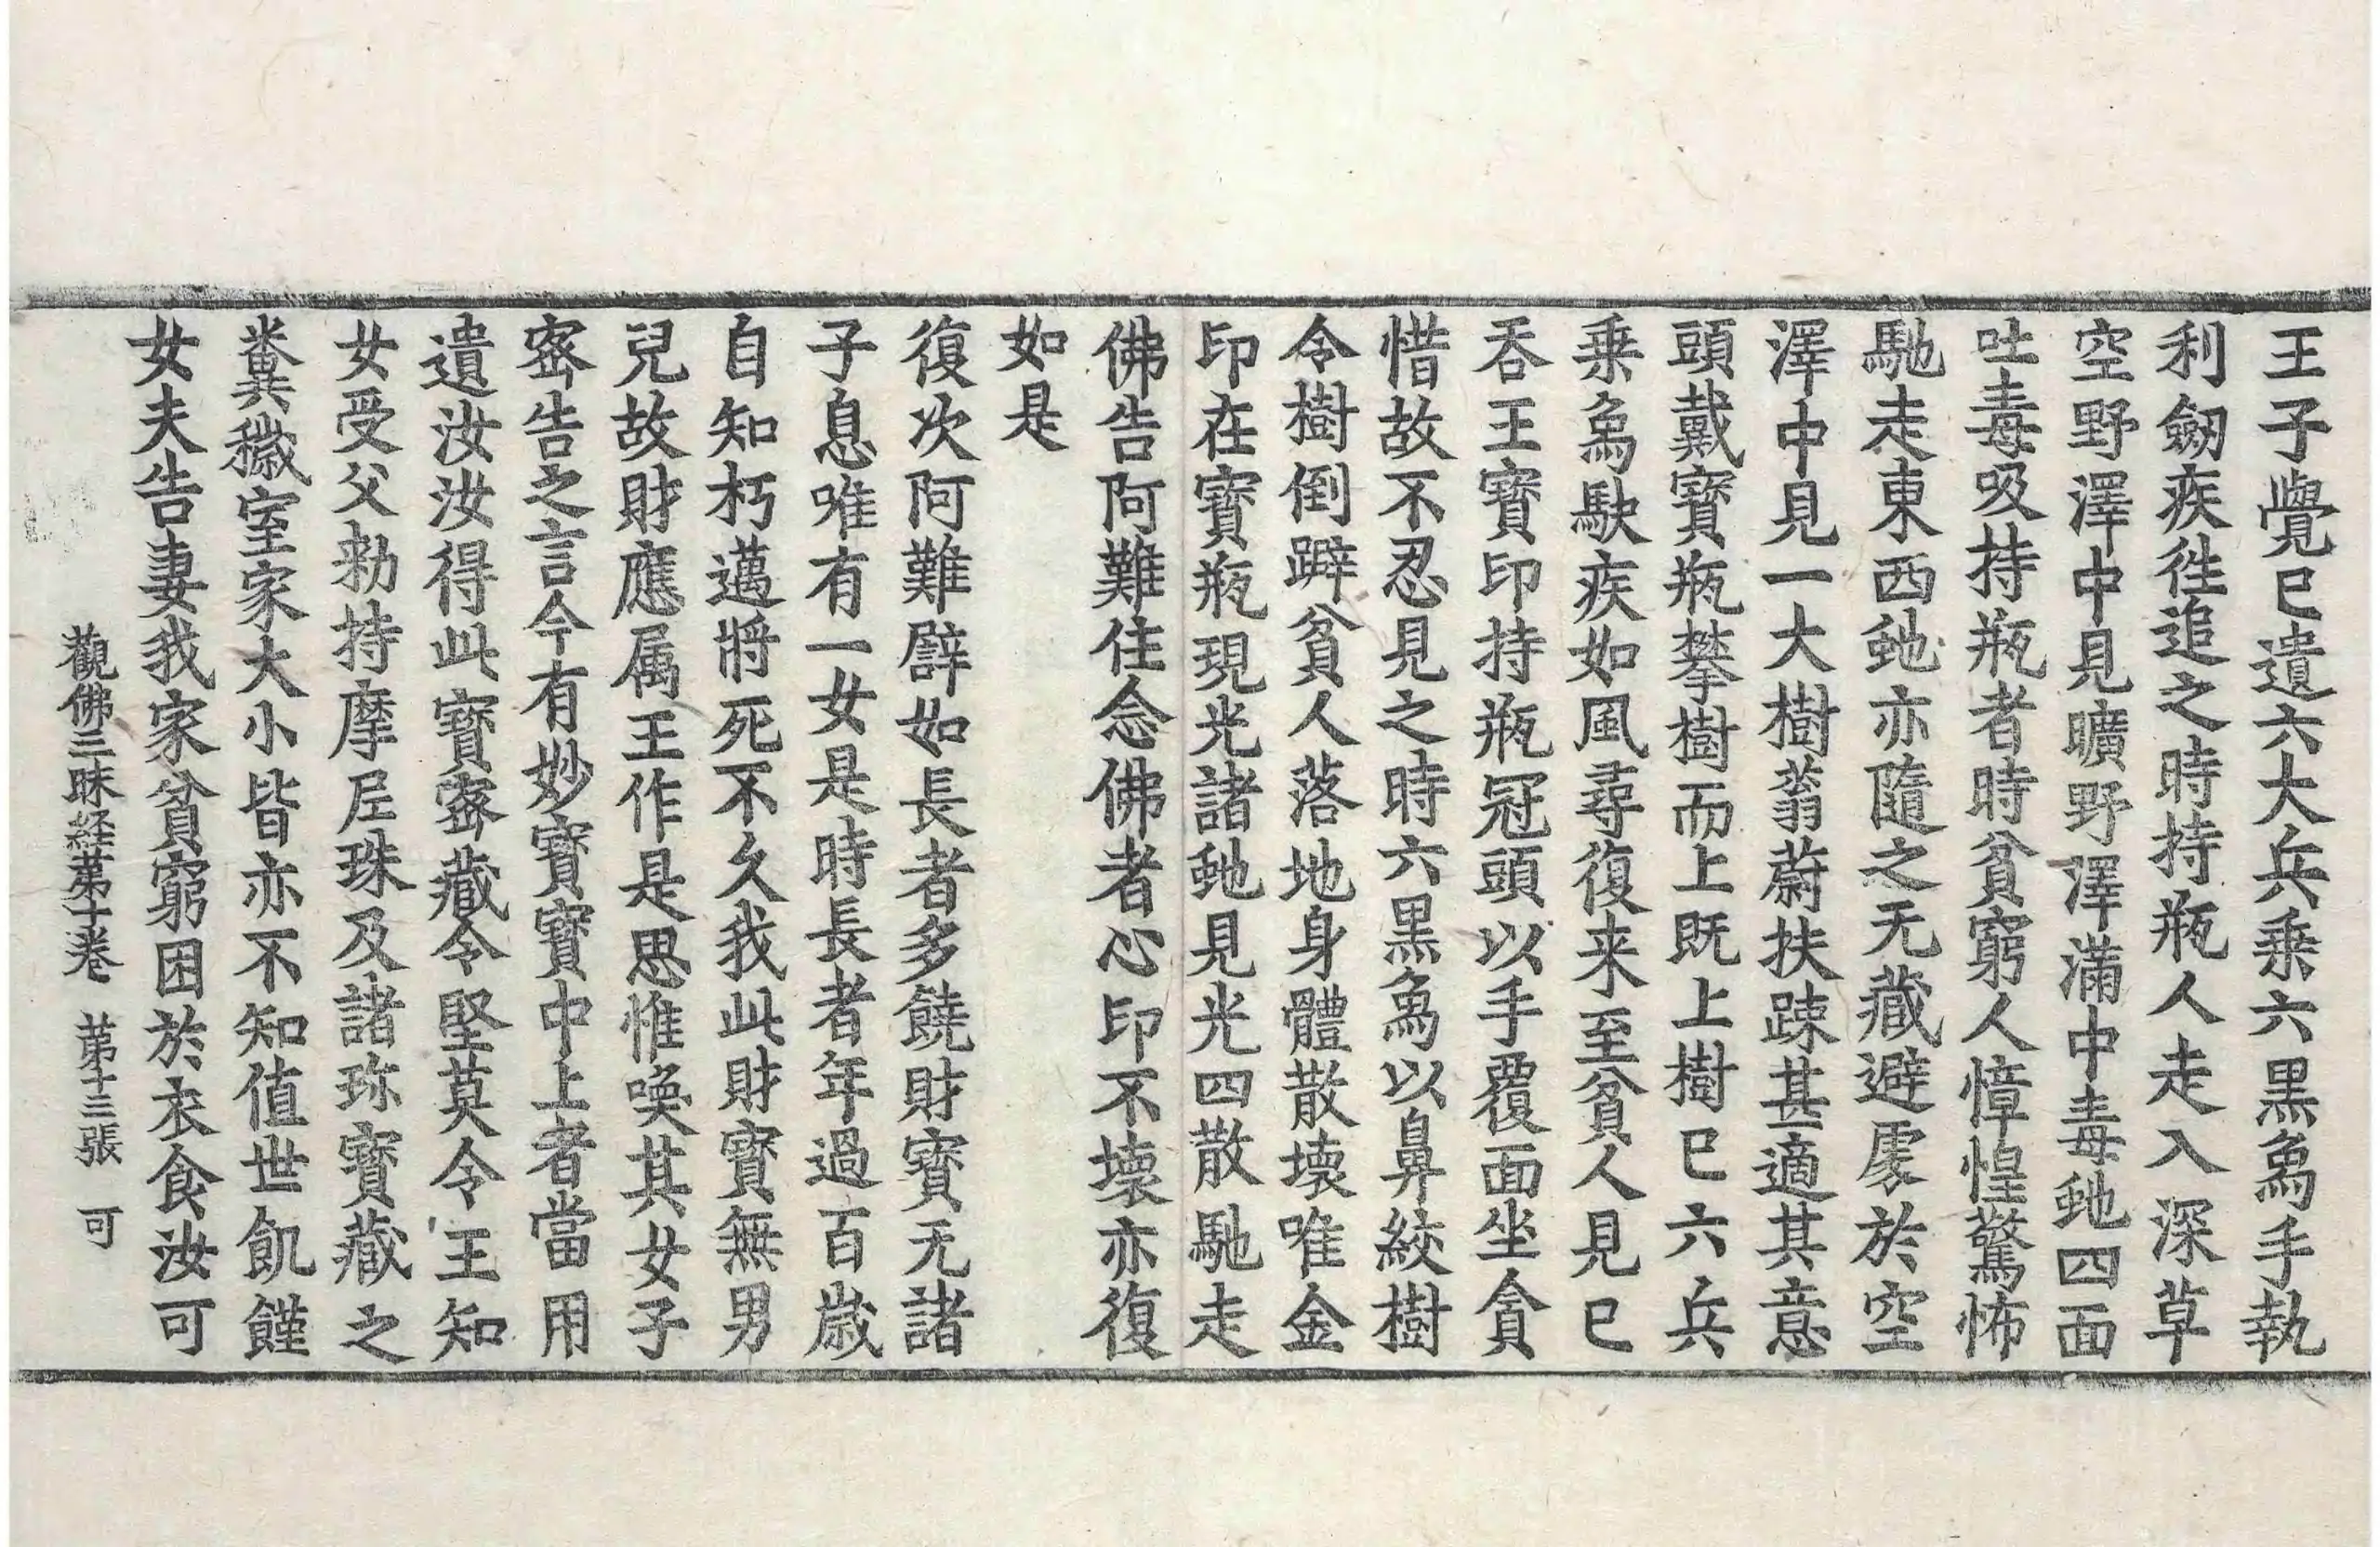 王子覺已遺六大兵乗六黒爲手執
利劒疾徃追之時持瓶人走入深草
空野澤中見曠野澤滿中毒虵四面
吐毒吸持瓶者時貧窮人慞惶驚怖
馳走東西虵亦隨之无藏避處於空
澤中見一大樹蓊蔚扶踈甚適其意
頭戴寶瓶攀樹而上既上樹已六兵
乗爲駛疾如風尋復来至貧人見已
吞王寶印持瓶冠頭以手覆面坐貪
惜故不忍見之時六黒爲以鼻絞樹
令樹倒躃貧人落地身體散壊唯金
印在寶瓶現光諸虵見光四散馳走
佛告阿難住念佛者心印不壊亦復
如是
復次阿難譬如長者多饒財寶无諸
子息唯有一女是時長者年過百歲
自知朽邁將死不久我此財寶無男
兒故財應属王作是思惟喚其女子
密告之言今有妙寶寶中上者當用
遺汝汝得此寶密藏令堅莫令王知
女受父勑持摩尼珠及諸珎寶藏之
糞穢室家大小皆亦不知值世飢饉
女夫告妻我家貧窮困於衣食汝可
觀佛三昧経第十卷 第十三張 可